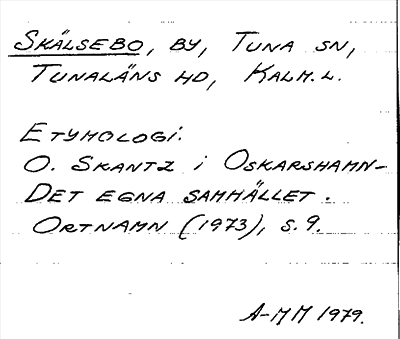 SKÄLSEBO, BY, TUNA SN,
TUNALÄNS HD, KALM. L.
ETYMOLOGI:
O. SKANTZ i OSKARSHAMN-
DET EGNA SAMHÄLLET.
ORTNAMN (1973), S. 9.
A-MM 1979.